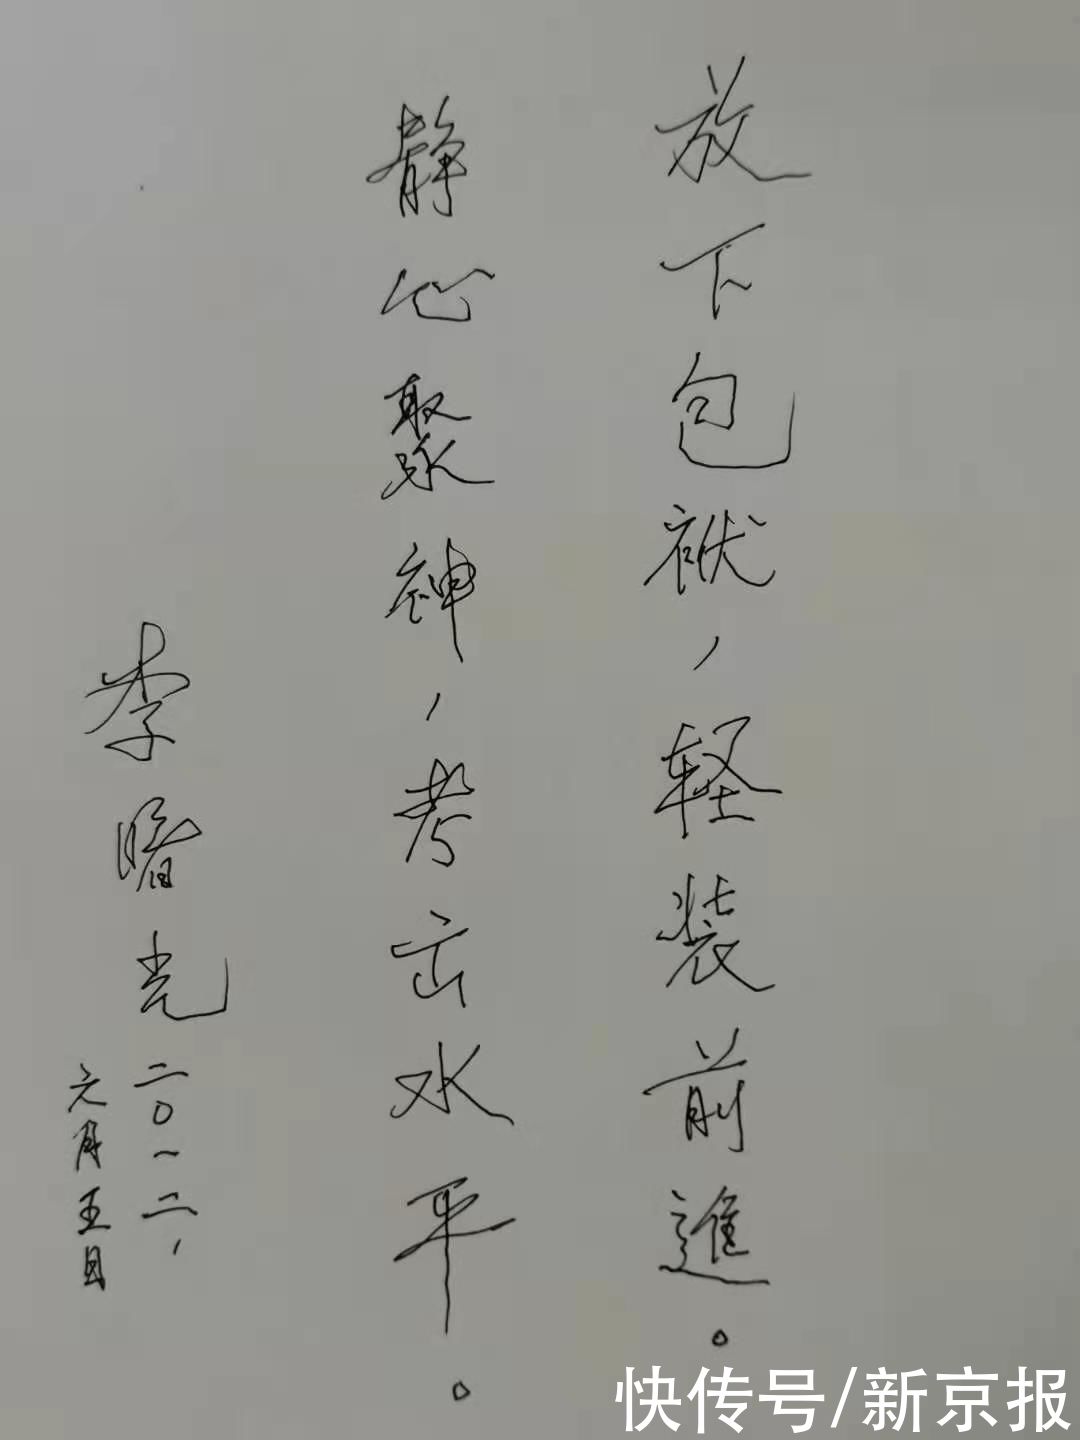 放下包袱，轻装前進。
静心聚神，考出水平。
李曙光
二〇一二，
元月五日
快传号/新京报